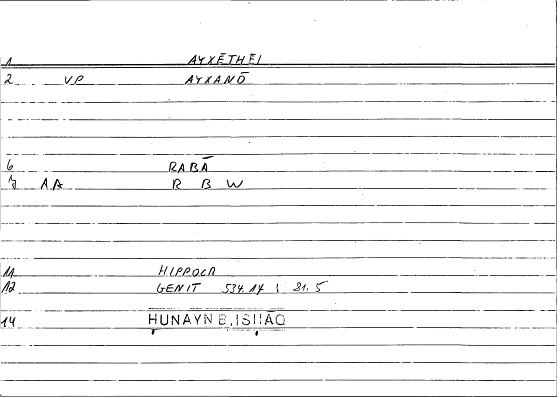 1 AYXĒTHĒI
2 VP AYXANŌ
6 RABĀ
7 AA R B W
11 HIPPOCR
12 GENIT 534.14 ; 21.5
14 ḤUNAYN B.ISḤĀQ